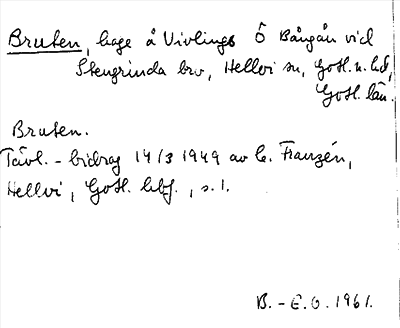 Bruten, hage å Vivlings Ö Bångån vid
Stengrinda bro, Hellvi sn, Gotl. n. hd,
Gotl. län.
Bruten.
Tävl.-bidrag 14/3 1949 av C. Franzén,
Hellvi, Gotl. hbf., s. 1.
B.-E.O. 1961.